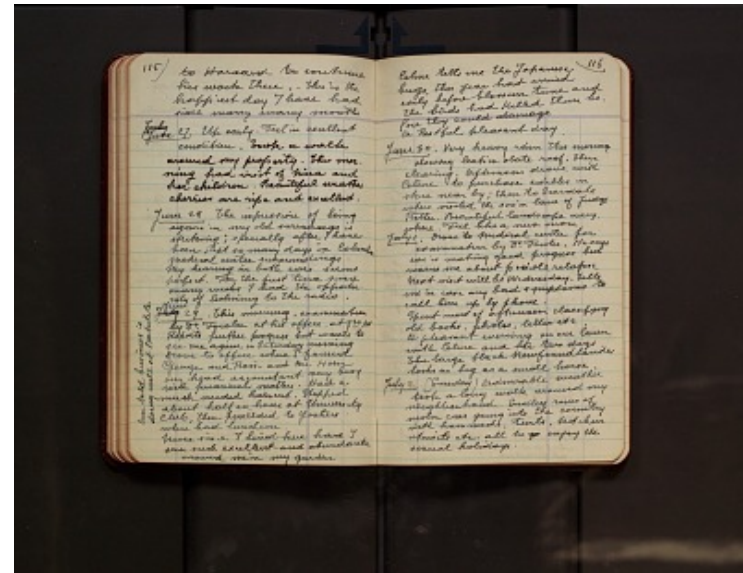 115
to Harvard to continue
his work there. This is the
happiest day I have had
since many many months
27. Up early. Feel in excellent
condition. Took a walk
around my property. This mor
ning had visit of Nina and
her children. Beautiful weather
cherries are ripe and excellent.
June 28 The impression of being
again in my old surroundings is
; specially after I have
been just so many days in
medical center surroundings
My hearing in both ears seems
perfect. For the first time since
many weeks I had the opportu
nity of listening to the radio.
29. This morning, examination
by Dr. at his office, at
Reports further progress but wants to
see me again on Saturday morning
Drove to office, where I found
George and and
my head accountant very busy
with financial matters. Had a
much needed haircut. Stopped
about half an hour at University
Club, then proceeded to Yonkers
where had luncheon
Never since I lived here have I
seen such excellent and abundant
around me in my garden
116
Celine tells me the Japanese
bugs this year had arrived
early before blossom time and
the birds had killed them be
fore they could damage
A restful pleasant day.
June 30. Very heavy rain this morning
slate roof. Then
clearing. Afternoon drove with
Celine to purchase in
store near by; then to
where visited the home of Judge
Beautiful landscape
where. Feel like a new man.
July 1. Drove to Medical center for
examination by Dr. He says
ear is making good progress but
warns me about possible relapse
Next visit will be Wednesday. Tells
me in case any bad symptoms to
call him up by phone.
Spent most of afternoon classifying
old books, photos, letters etc
A pleasant evening on our lawn
with Celine and the two dogs
The large black Newfoundlander
looks as big as a small horse.
July 2. (Sunday) Admirable weather
took a long walk around my
neighborhood. Endless rows of
motor cars going into the country
with hammocks, tents,
etc. all to go enjoy the
annual holidays.